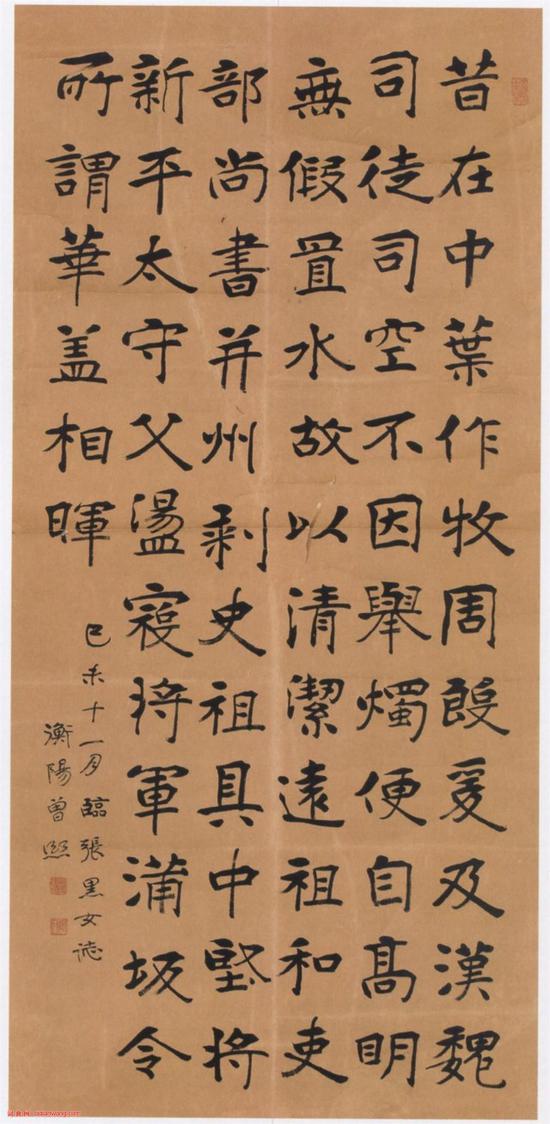 昔在中葉作牧周殷爰及漢魏
司徒司空不因舉燭便自高明
無假置水故以清潔遠祖和吏
部尚書并州刾史祖具中堅將
新平太守父盪寇将軍蒲坂令
所謂華盖相暉
己未十一月臨張黑女誌
衡陽曾熙